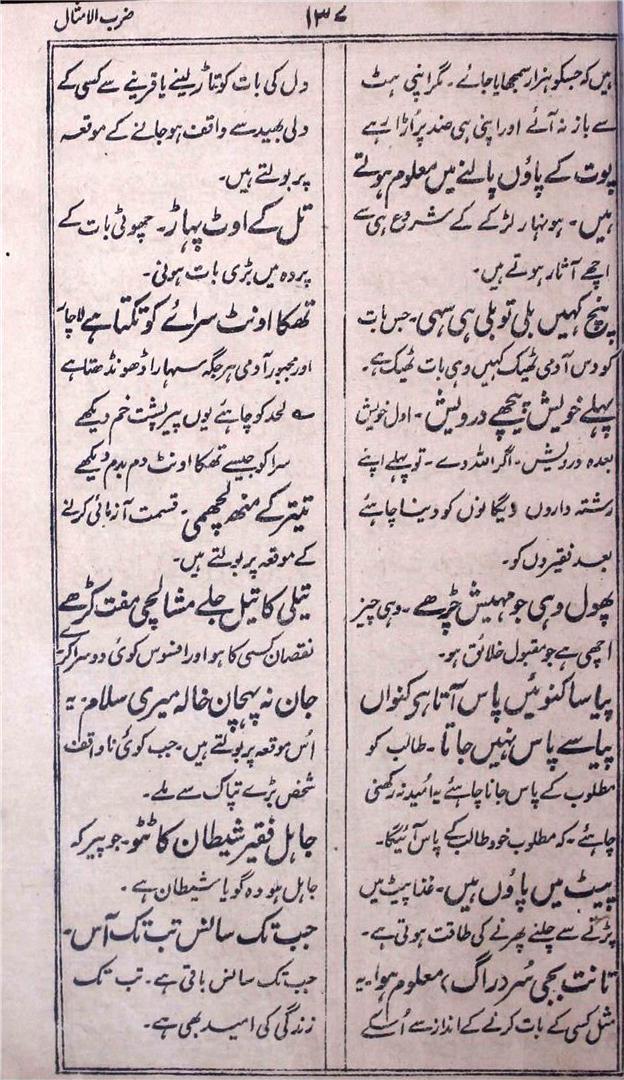 ضرب الامثال
۱۳۷
ہیں کہ جسکو ہزار سمجھایا جائے۔ مگر اپنی ہٹ
سے باز نہ آئے اور اپنی ہی ضد پر اڑا رہے
پوت کے پاؤں پالنے میں معلوم ہوتے
ہیں۔ ہونہار لڑکے کے شروع ہی سے
اچھے آثار ہوتے ہیں۔
پنچ کہیں بلی تو بلی ہی سہی۔ جس بات
کو دس آدمی ٹھیک کہیں وہی بات ٹھیک ہے۔
پہلے خویش پیچھے درویش۔ اول خویش
بعدہ درویش۔ اگر اللہ دے۔ تو پہلے اپنے
رشتہ داروں و یگانوں کو دینا چاہئے
بعد فقیروں کو۔
پھول وہی جو مہیش چڑھے۔ وہی چیز
اچھی ہے جو مقبول خلائق ہو۔
پیاسا کنوئیں پاس آتا ہے کنواں
پیاسے پاس نہیں جاتا۔ طالب کو
مطلوب کے پاس جانا چاہئے یہ امید نہ رکھنی
چاہئے۔ کہ مطلوب خود طالب کے پاس آئیگا۔
پیٹ میں پاؤں ہیں۔ غذا پیٹ میں
پڑنے سے چلنے پھرنے کی طاقت ہوتی ہے۔
تانت بجی سُر دراگ، معلوم ہوا۔ یہ
مثل کسی کے بات کرنے کے انداز سے اُسکے
دل کی بات کو تاڑ لینے یا قرینے سے کسی کے
دلی بھید سے واقف ہو جانے کے موقعہ
پر بولتے ہیں۔
تل کے اوٹ پہاڑ۔ چھوٹی بات کے
پردہ میں بڑی بات ہونی۔
تھکا اونٹ سرائے کو تکتا ہے لاچار
اور مجبور آدمی ہر جگہ سہارا ڈھونڈھتا ہے
؎ لحد کو چاہئے یوں پیر پشت خم دیکھے
سرا کو جیسے تھکا اونٹ دم بدم دیکھے
تیتر کے منھ لچھمی۔ قسمت آزمائی کرنے
کے موقعہ پر بولتے ہیں۔
تیلی کا تیل جلے مشالچی مفت کڑھے
نقصان کسی کا ہو اور افسوس کوئی دوسرا کرے
جان نہ پہچان خالہ میری سلام۔ یہ
اُس موقعہ پر بولتے ہیں۔ جب کوئی ناواقف
شخص بڑے تپاک سے ملے۔
جاہل فقیر شیطان کا ٹٹو۔ جو پیر کہ
جاہل ہو وہ گویا شیطان ہے۔
جب تک سانس تب تک آس۔
جب تک سانس باقی ہے۔ تب تک
زندگی کی امید بھی ہے۔